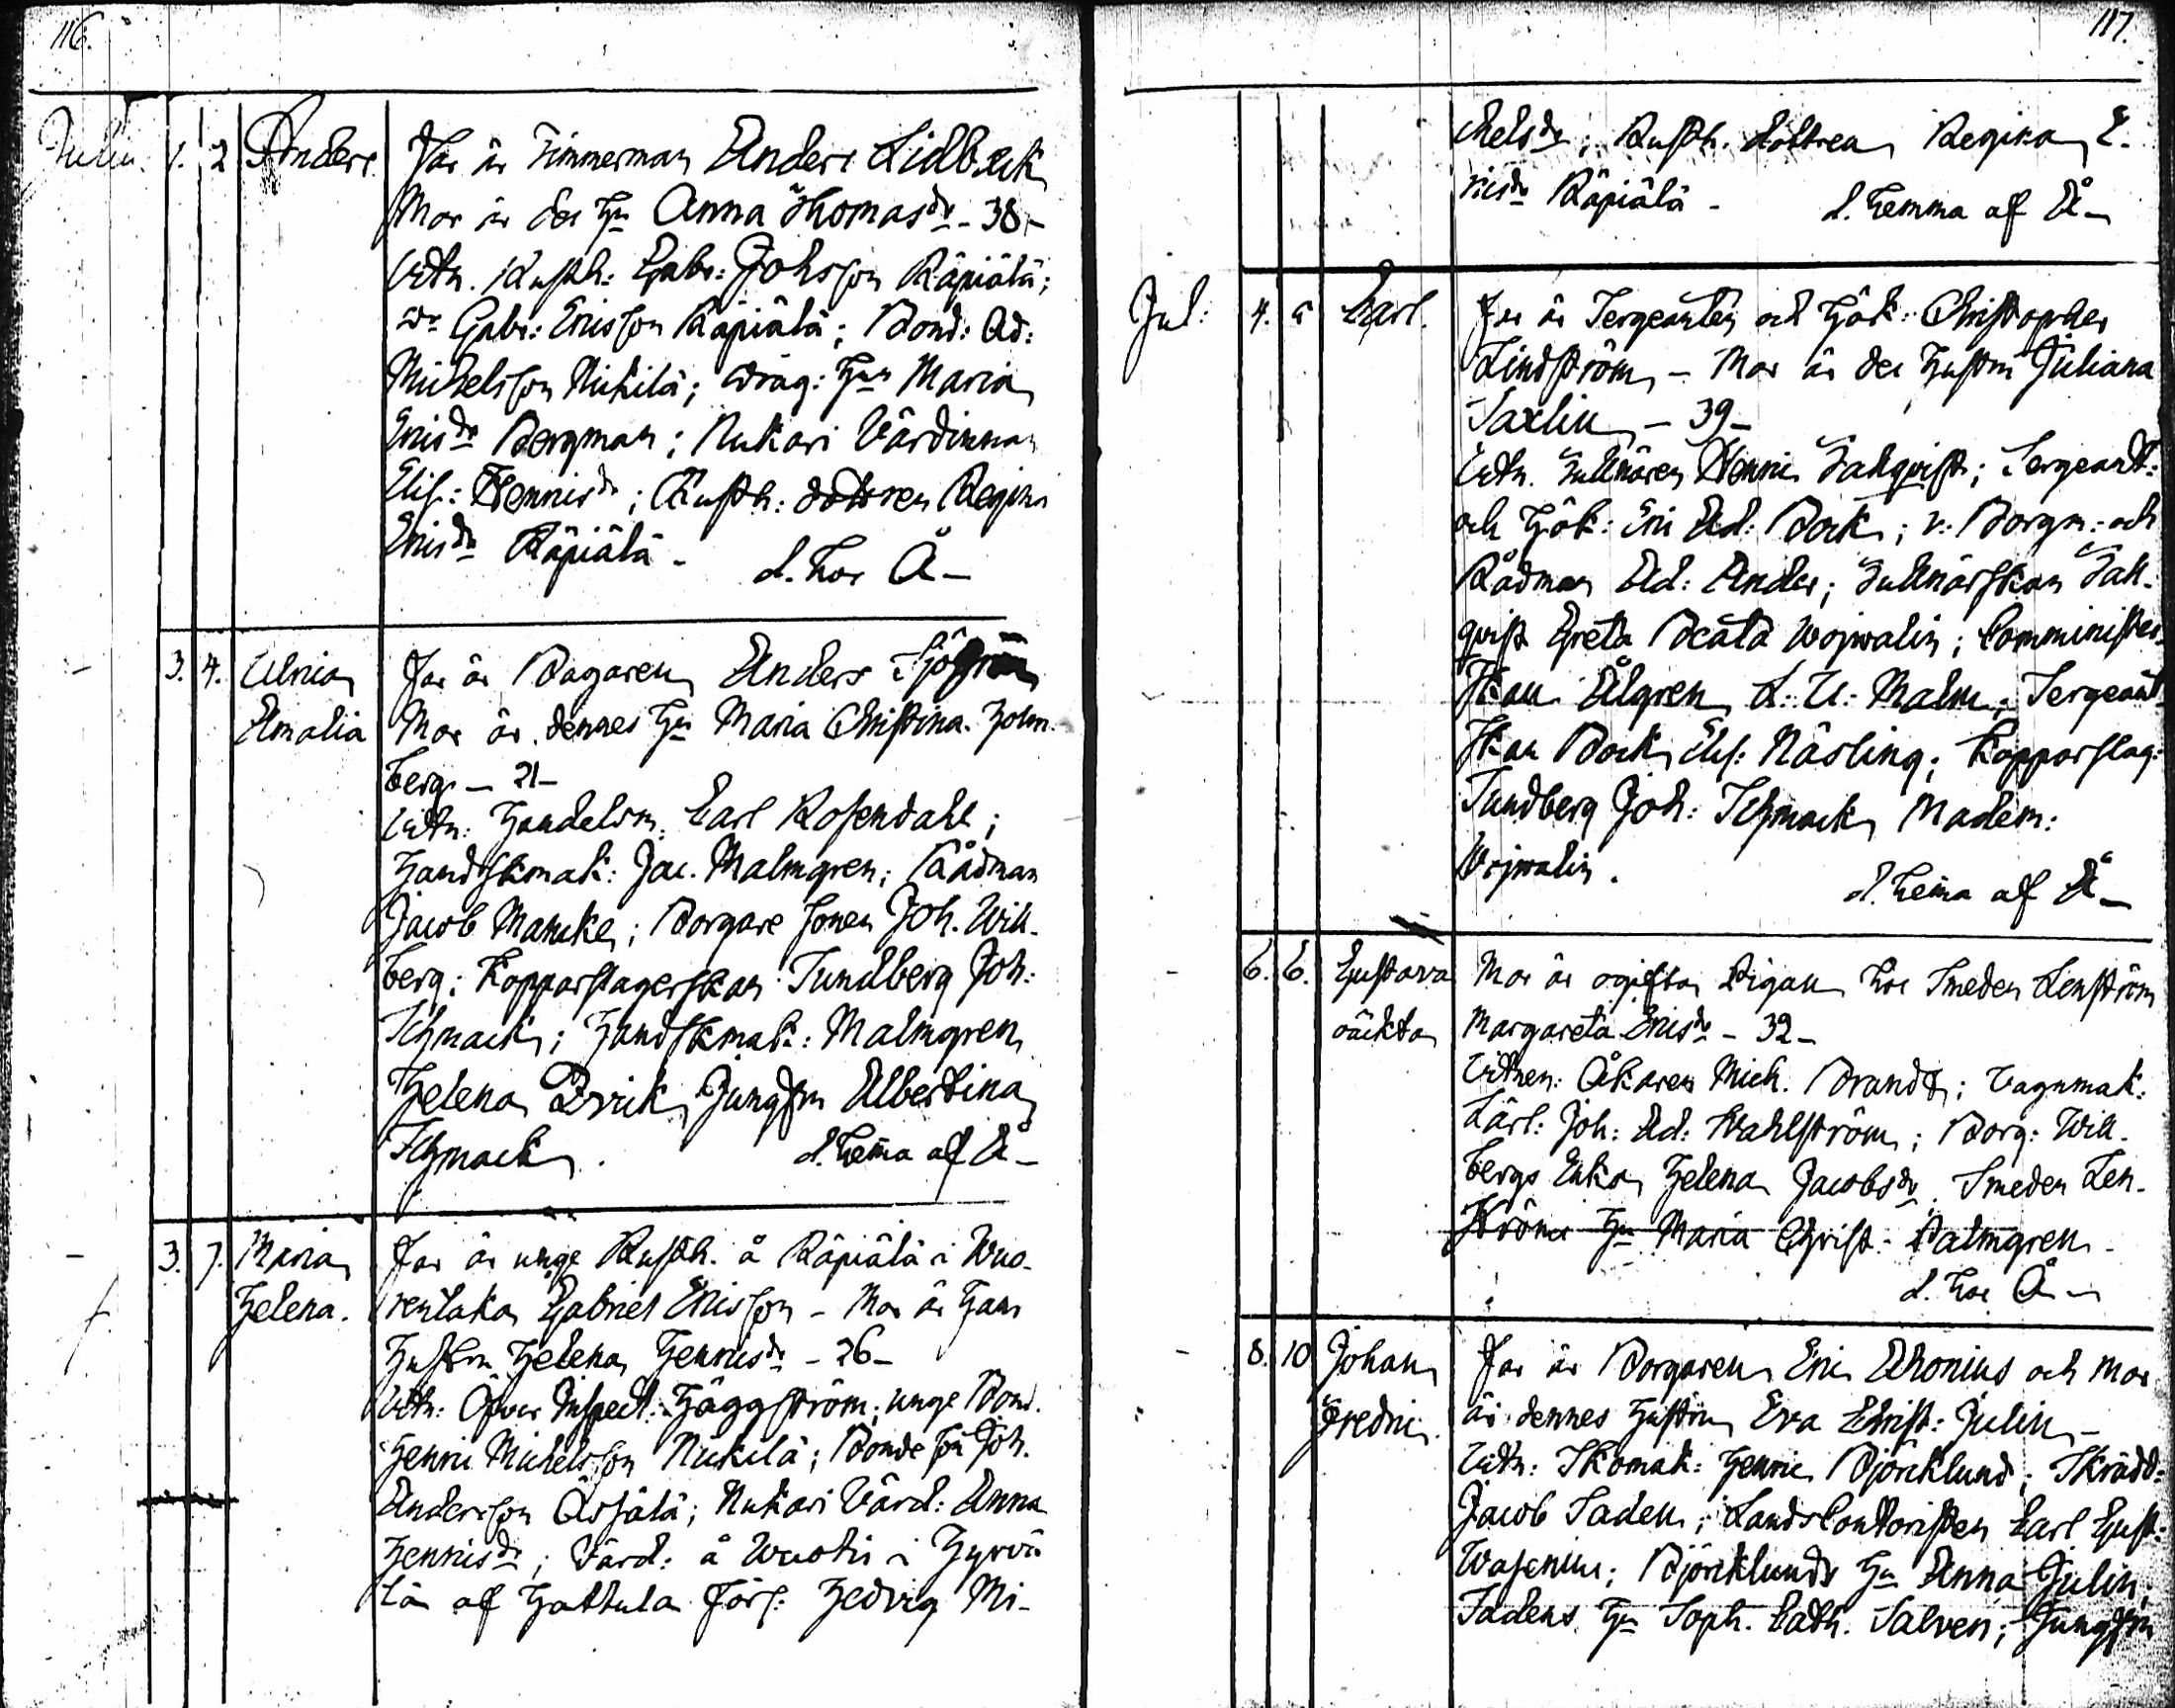 116.
Julii. 1. 2 Anders. Far är Timmerman Anders Lidbeck
Mor är des Hu Anna Thomasdr - 38 -
Vittn. Rusth: Gabr: Johsson Räpiälä;
Dr Gabr: Ericsson Räpiälä; Bond: Ad:
Michelsson Nickilä; Drag: Hun Maria
Ericsdr Bergman; Nukari Värdinnan
Elis: Hennicsdr; Rusth: dottren Regina
Ericsdr Räpiälä - d. hos Å -
3. 4. Ulrica Far är Bagaren Anders
Amalia Mor är dennes Hu Maria Christina Holm-
berg - 21 -
Vittn: Handelsm. Carl Rosendahl;
Handskmak: Jac. Malmgren; Rådman
Jacob Mancke; Borgare Sonen Joh. Will-
berg; Kopparslagerskan Sundberg Joh:
Schmack; Handskmak: Malmgren
Helena Jungfrn Albertina
Schmack. d. hema af Å -
3. 7. Maria Far är unge Rusth. å Räpiälä i Wuo-
Helena. rentaka Gabriel Ericsson - Mor är Hans
Hustru Helena Henricsdr - 26 -
Vittn: Öfver Inspect: Häggström; unge Bond.
Henric Michelsson Nickilä; Bonde son Joh.
Andersson Nukari Värd: Anna
Henricsdr; Värd: å Wuotis i Hyrvä-
lä af Hattula Förs: Hedvig Mi-
117.
chelsdr; Rusth. dottren Regina E-
ricsdr Räpiälä - d. hemma af Å -
Jul: 4. 5 Carl. Far är Sergeanten och Hök: Christopher
Lindström - Mor är des Hustru Juliana
Saxlin - 39 -
Vittn. Tullnären Hennric Sahlqvist; Sergeant:
och Hök: Eric Ad: Bock; v: Borgm: och
Rådman Ad: Ander; Tullnärskan Sahl-
qvist Greta Beata Wojwalin; Comminister-
skan Ålgren L: U: Malm; Sergeant
skan Bock Elis: Näsling; Kopparslag:
Sundberg Joh: Schmack Madem:
Wojwalin. d. hema af Å -
6. 6. Gustava Mor är ogifta Pigan hos Smeden Lenström
oäckta Margareta Ericsdr - 32 -
Vittnen: Åkaren Mich. Brandt; Vagnmak:
Lärl: Joh: Ad: Wahlström; Borg: Will-
bergs Enka Helena Jacobsdr. Smeden Len-
ströms Hu Maria Christ: Palmgren -
d. hos Å -
8. 10 Johan Far är Borgaren Eric Ahonius och Mor
Fredric. är dennes Hustru Eva Christ: Julin -
Vittn: Skomak: Henric Björcklund; Skrädd:
Jacob Saden; Lands Contoristen Carl Gust:
Wasenius; Björcklunds Hu Anna Julin;
Sadens Hu Soph. Cath. Salven; Jungfrn